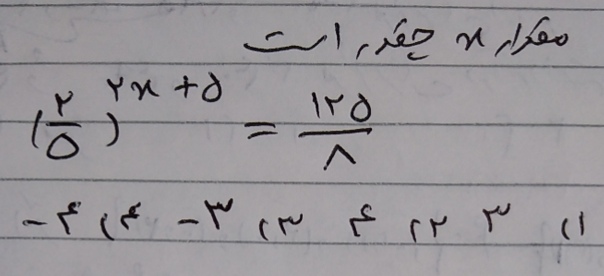 مقدار x چقدر است
(۲/۵)^۲x+۵ = ۱۲۵/۸
۱) ۳ ۲) ۴ ۳) ۳- ۴) ۴-